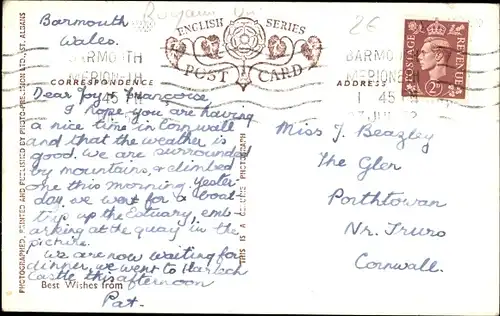 Barmouth
Wales.
26
ENGLISH SERIES
POST CARD
CORRESPONDENCE
ADDRESS
BARMOUTH
MERIONETH
145 PM
BARMO
MERIONE
1 45 PM
JUL
POSTAGE REVENUE
2D
Dear Joy &
I hope you are having
a nice time in Cornwall
and that the weather is
good. We are surrounded
by mountains, & climbed
one this morning. Yester-
day we went for a boat
trip up the Estuary, emb-
arking at the quay in the
picture.
We are now waiting for
dinner, we went to Harlech
Castle this afternoon
Best Wishes from
Pat.
Miss J. Beazley
The Gler
Porthtowan
Nr. Truro
Cornwall.
PHOTOGRAPHED, PRINTED AND PUBLISHED BY PHOTO-PRECISION LTD., ST. ALBANS
THIS IS A GENUINE PHOTOGRAPH